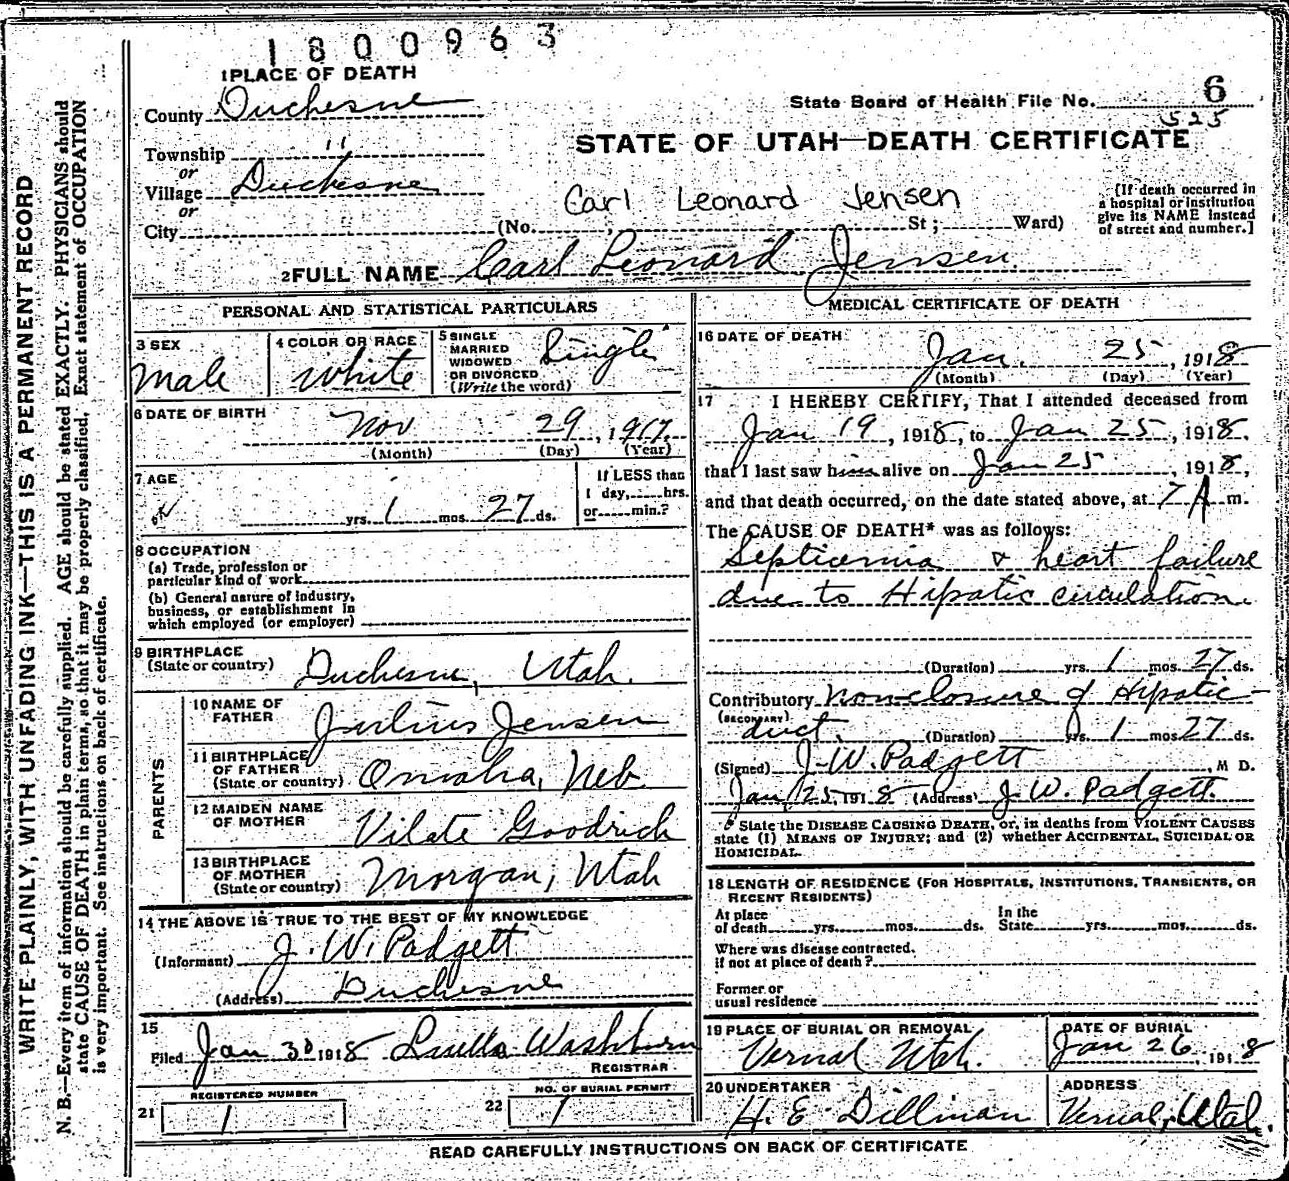 1800963
1 PLACE OF DEATH
County Duchesne
State Board of Health File No. 6
525
Township "
STATE OF UTAH—DEATH CERTIFICATE
or
Village Duchesne
or
Carl Leonard Jensen
City (No. , St; Ward)
[If death occurred in
a hospital or institution
give its NAME instead
of street and number.]
2 FULL NAME Carl Leonard Jensen
PERSONAL AND STATISTICAL PARTICULARS
3 SEX
Male
4 COLOR OR RACE
White
5 SINGLE
MARRIED
WIDOWED
OR DIVORCED
(Write the word)
Single
6 DATE OF BIRTH
Nov 29, 1917
(Month) (Day) (Year)
7 AGE
yrs. 1 mos. 27 ds.
If LESS than
1 day, hrs.
or min.?
8 OCCUPATION
(a) Trade, profession or
particular kind of work
(b) General nature of industry,
business, or establishment in
which employed (or employer)
9 BIRTHPLACE
(State or country) Duchesne, Utah.
PARENTS
10 NAME OF
FATHER Julius Jensen
11 BIRTHPLACE
OF FATHER
(State or country) Omaha, Neb
12 MAIDEN NAME
OF MOTHER Vilate Goodrich
13 BIRTHPLACE
OF MOTHER
(State or country) Morgan, Utah
14 THE ABOVE IS TRUE TO THE BEST OF MY KNOWLEDGE
(Informant) J. W. Padgett
(Address) Duchesne
15
Filed Jan 30 1918 Luella Washburn
REGISTRAR
21 REGISTERED NUMBER
1
22 NO. OF BURIAL PERMIT
1
MEDICAL CERTIFICATE OF DEATH
16 DATE OF DEATH
Jan. 25, 1918
(Month) (Day) (Year)
17 I HEREBY CERTIFY, That I attended deceased from
Jan 19, 1918, to Jan 25, 1918.
that I last saw him alive on Jan 25, 1918,
and that death occurred, on the date stated above, at 7 A m.
The CAUSE OF DEATH* was as follows:
Septicemia & heart failure
due to Hipatic circulation.
(Duration) yrs. 1 mos. 27 ds.
Contributory Nonclosure of Hipatic
(SECONDARY)
duct. (Duration) yrs. 1 mos. 27 ds.
(Signed) J. W. Padgett, M D.
Jan 25, 1918 (Address) J. W. Padgett.
* State the DISEASE CAUSING DEATH, or, in deaths from VIOLENT CAUSES
state (1) MEANS OF INJURY; and (2) whether ACCIDENTAL, SUICIDAL OR
HOMICIDAL.
18 LENGTH OF RESIDENCE (FOR HOSPITALS, INSTITUTIONS, TRANSIENTS, OR
RECENT RESIDENTS)
At place
of death yrs. mos. ds.
In the
State yrs. mos. ds.
Where was disease contracted.
if not at place of death?
Former or
usual residence
19 PLACE OF BURIAL OR REMOVAL
Vernal Utah.
DATE OF BURIAL
Jan 26, 1918
20 UNDERTAKER
H. E. Dillman
ADDRESS
Vernal, Utah.
READ CAREFULLY INSTRUCTIONS ON BACK OF CERTIFICATE
WRITE PLAINLY, WITH UNFADING INK—THIS IS A PERMANENT RECORD
N. B.—Every item of information should be carefully supplied. AGE should be stated EXACTLY. PHYSICIANS should
state CAUSE OF DEATH in plain terms, so that it may be properly classified. Exact statement of OCCUPATION
is very important. See instructions on back of certificate.